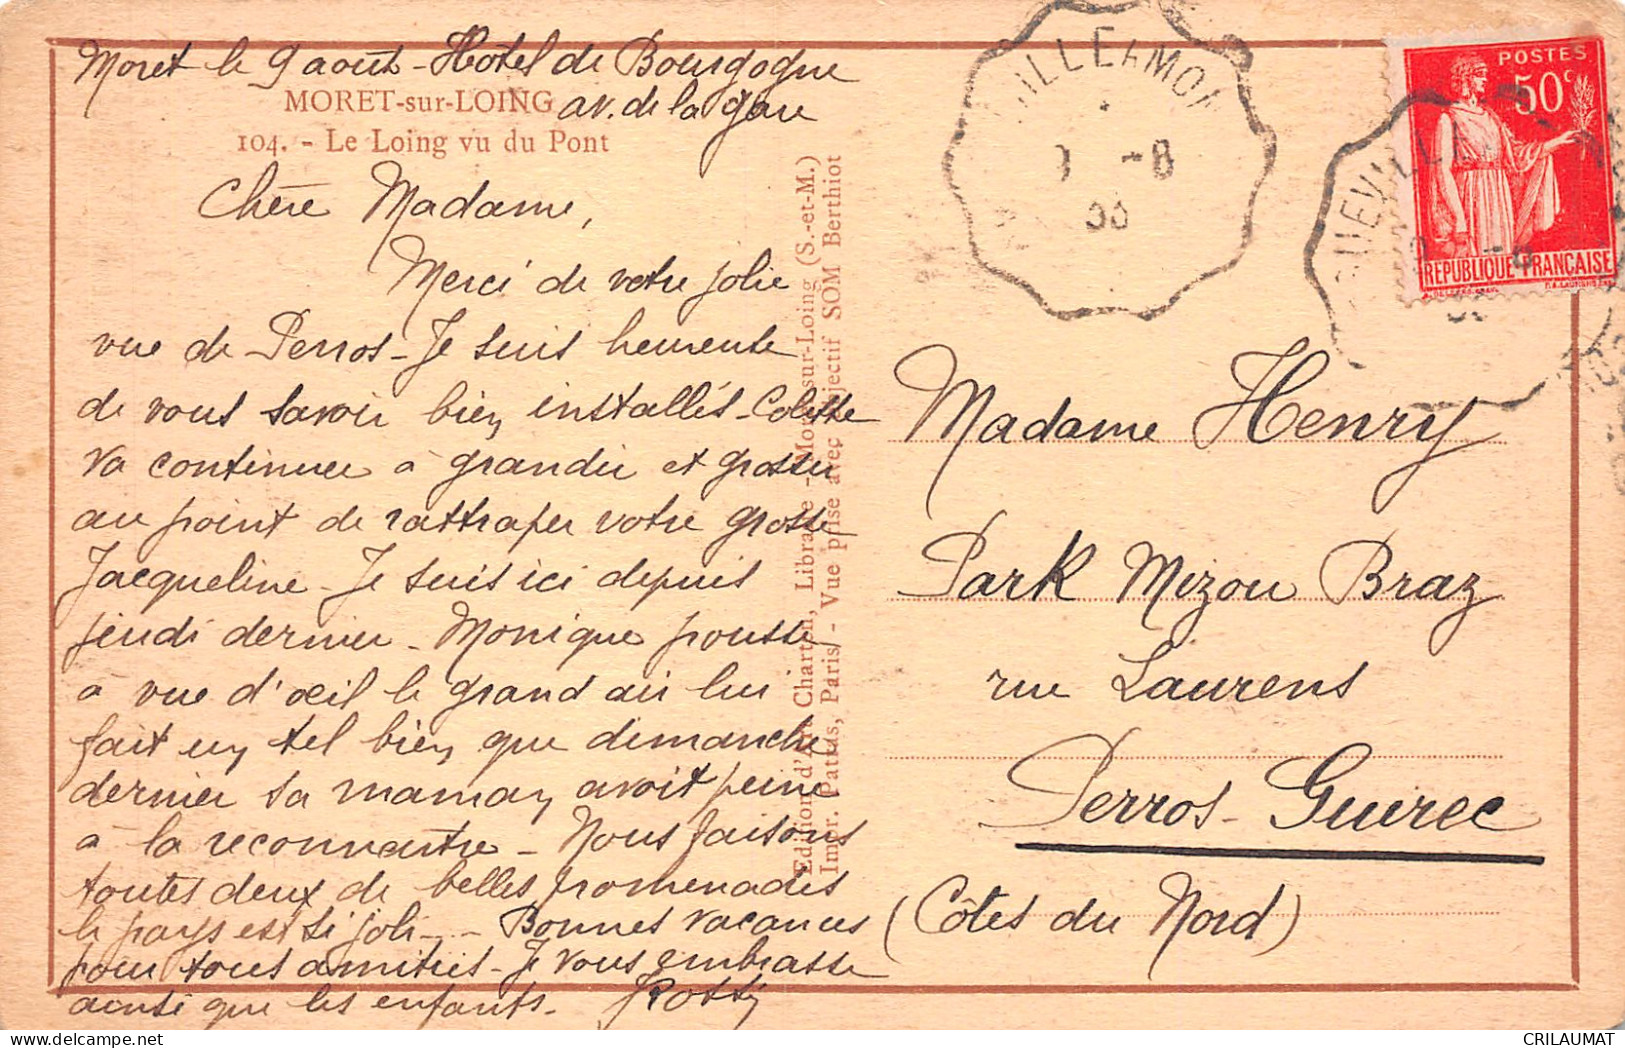 Moret le 9 août - Hôtel de Bourgogne
av. de la gare
MORET-sur-LOING
104. - Le Loing vu du Pont
Chère Madame,
Merci de votre jolie
vue de Perros - Je suis heureuse
de vous savoir bien installés - Colette
va continuer à grandir et grossir
au point de rattraper votre grosse
Jacqueline - Je suis ici depuis
jeudi dernier - Monique pousse
à vue d'œil le grand air lui
fait un tel bien que dimanche
dernier sa maman avait peine
à la reconnaître - Nous faisons
toutes deux de belles promenades
le pays est si joli - Bonnes vacances
pour tous amitiés - Je vous embrasse
ainsi que les enfants -
Edition d'Art Chartin, Libraire - Moret-sur-Loing (S.-et-M.)
Impr. Pattas, Paris - Vue prise avec objectif SOM Berthiot
POSTES
50c
REPUBLIQUE FRANÇAISE
9 -8
Madame Henry
Park Mizou Braz
rue Laurens
Perros-Guirec
(Côtes du Nord)
CRILAUMAT